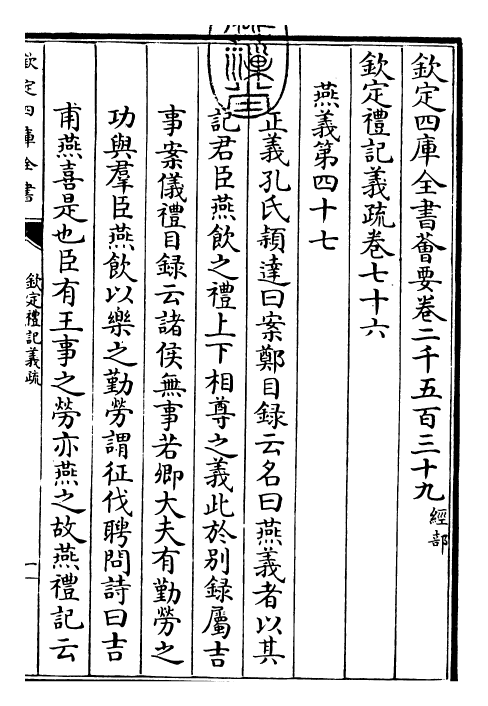 欽定四庫全書薈要卷二千五百三十九經部
欽定禮記義疏卷七十六
燕義第四十七
正義孔氏穎達曰案鄭目録云名曰燕義者以其
記君臣燕飲之禮上下相尊之義此於别録屬吉
事案儀禮目録云諸侯無事若卿大夫有勤勞之
功與羣臣燕飲以樂之勤勞謂征伐聘問詩曰吉
甫燕喜是也臣有王事之勞亦燕之故燕禮記云
欽定四庫全書
欽定禮記義疏
一